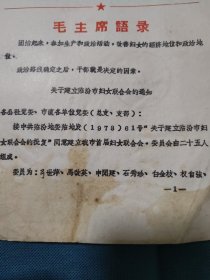 毛主席語录
团结起来，参加生产和政治活动，改善妇女的经济地位和政治地
位。
政治路线确定之后，干部就是决定的因素。
关于建立临汾市妇女联合会的通知
各公社党委、市直各单位党委（总支、支部）：
接中共临汾地委临地发（1973）61号“关于建立临汾市妇
女联合会的批复”同意建立我市首届妇女联合会。委员会由二十五人
组成。
委员为：
—1—